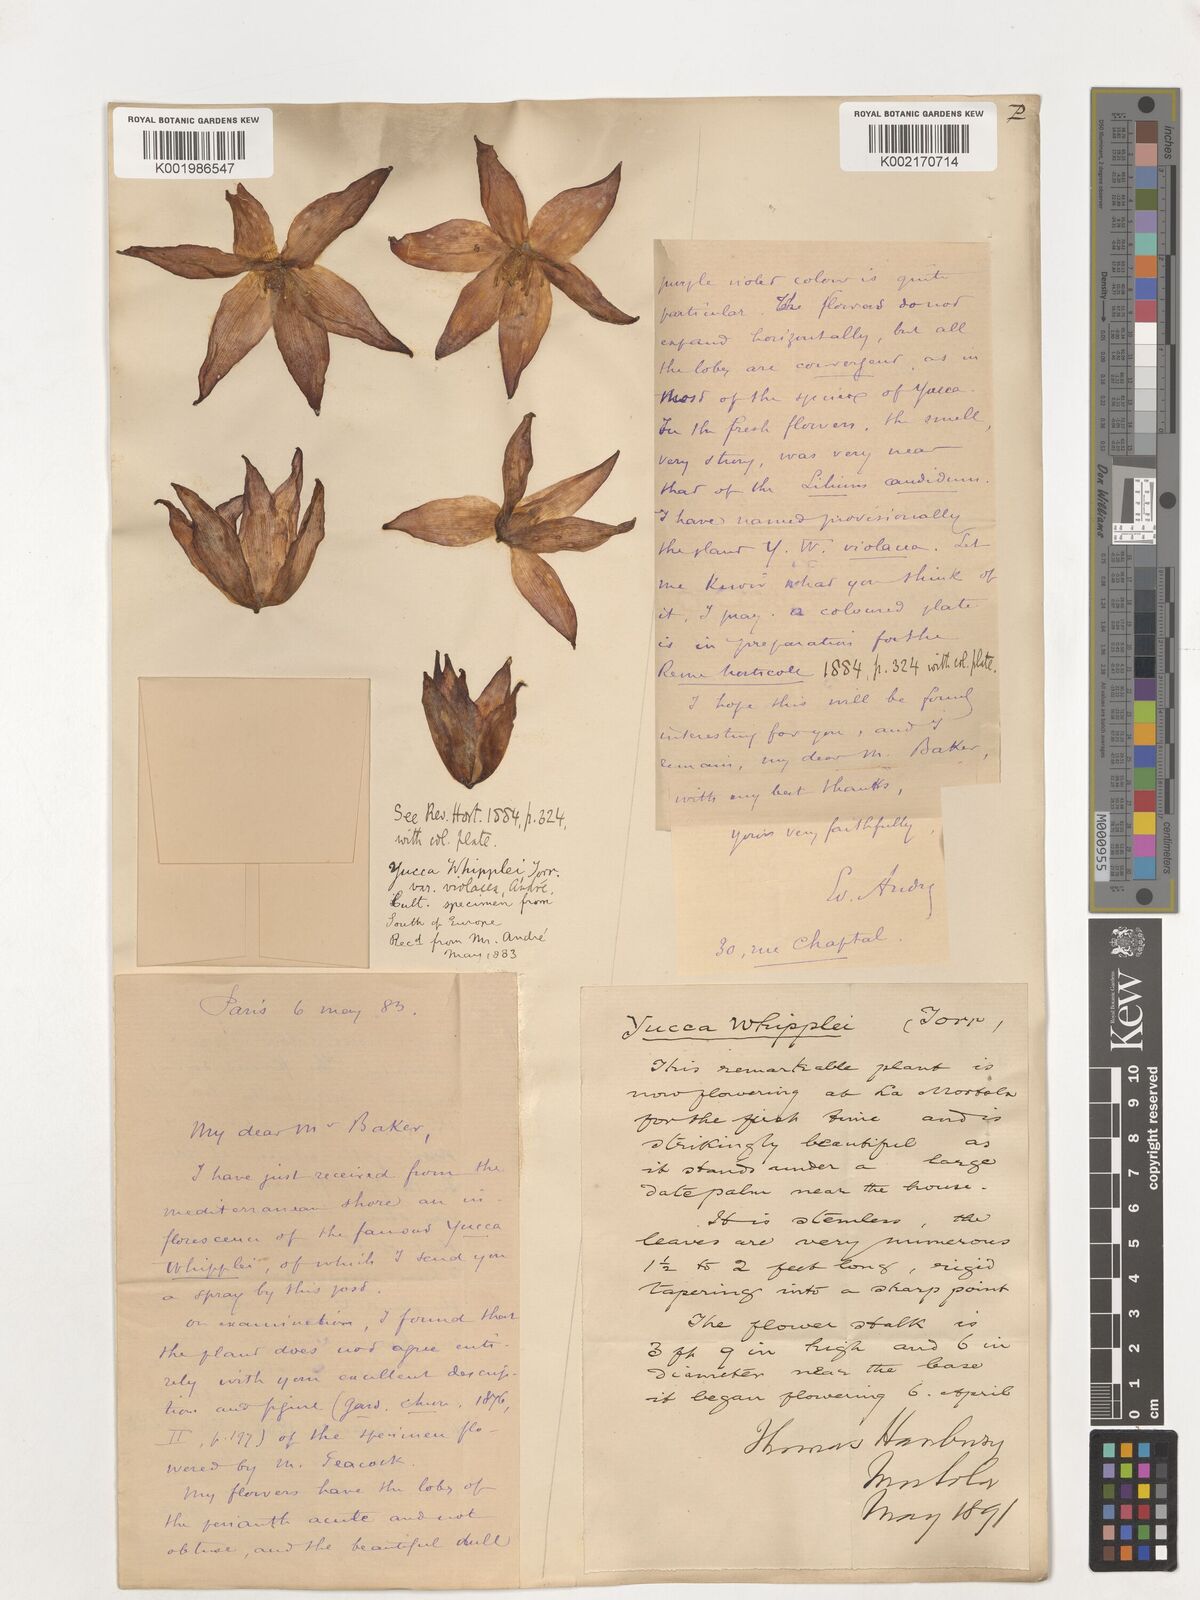 ROYAL BOTANIC GARDENS KEW
K001986547
ROYAL BOTANIC GARDENS KEW
K002170714
See Rev. Hort. 1884, p. 324,
with col. plate.
Yucca Whipplei, Torr.
var. violacea, André.
Cult. specimen from
South of Europe
Recd from Mr. André
May 1883
Paris 6 may 83.
My dear Mr Baker,
I have just received from the
mediterranean shore an in-
florescence of the famous Yucca
Whipplei, of which I send you
a spray by this post.
on examination, I found that
the plant does not agree enti-
rely with your excellent descrip-
tion and figure (Gard. Chron. 1876,
II, p. 197) of the specimen flo-
wered by M. Peacock.
My flowers have the lobes of
the perianth acute and not
obtuse, and the beautiful dull
purple violet colour is quite
particular. The flowers do not
expand horizontally, but all
the lobes are convergent, as in
most of the species of Yucca.
In the fresh flowers, the smell,
very strong, was very near
that of the Lilium candidum.
I have named provisionally
the plant Y. W. violacea. Let
me know what you think of
it, I pray. a coloured plate
is in preparation for the
Revue horticole 1884, p. 324 with col. plate.
I hope this will be found
interesting for you, and I
remain, my dear M. Baker,
with my best thanks,
yours very faithfully,
Ed. André
30, rue Chaptal.
Yucca Whipplei (Torr,
This remarkable plant is
now flowering at La Mortola
for the first time and is
strikingly beautiful as
it stands under a large
Date palm near the house.
It is stemless, the
leaves are very numerous
1½ to 2 feet long, rigid
tapering into a sharp point
The flower stalk is
3 ft 9 in high and 6 in
Diameter near the base
it began flowering 6. April
Thomas Hanbury
Mortola
May 1891
inches
Density
Don Williams
M000955
centimeters
Royal Botanic Gardens
Kew
0 1 2 3 4 5 6 7 8 9 10
cm
copyright reserved